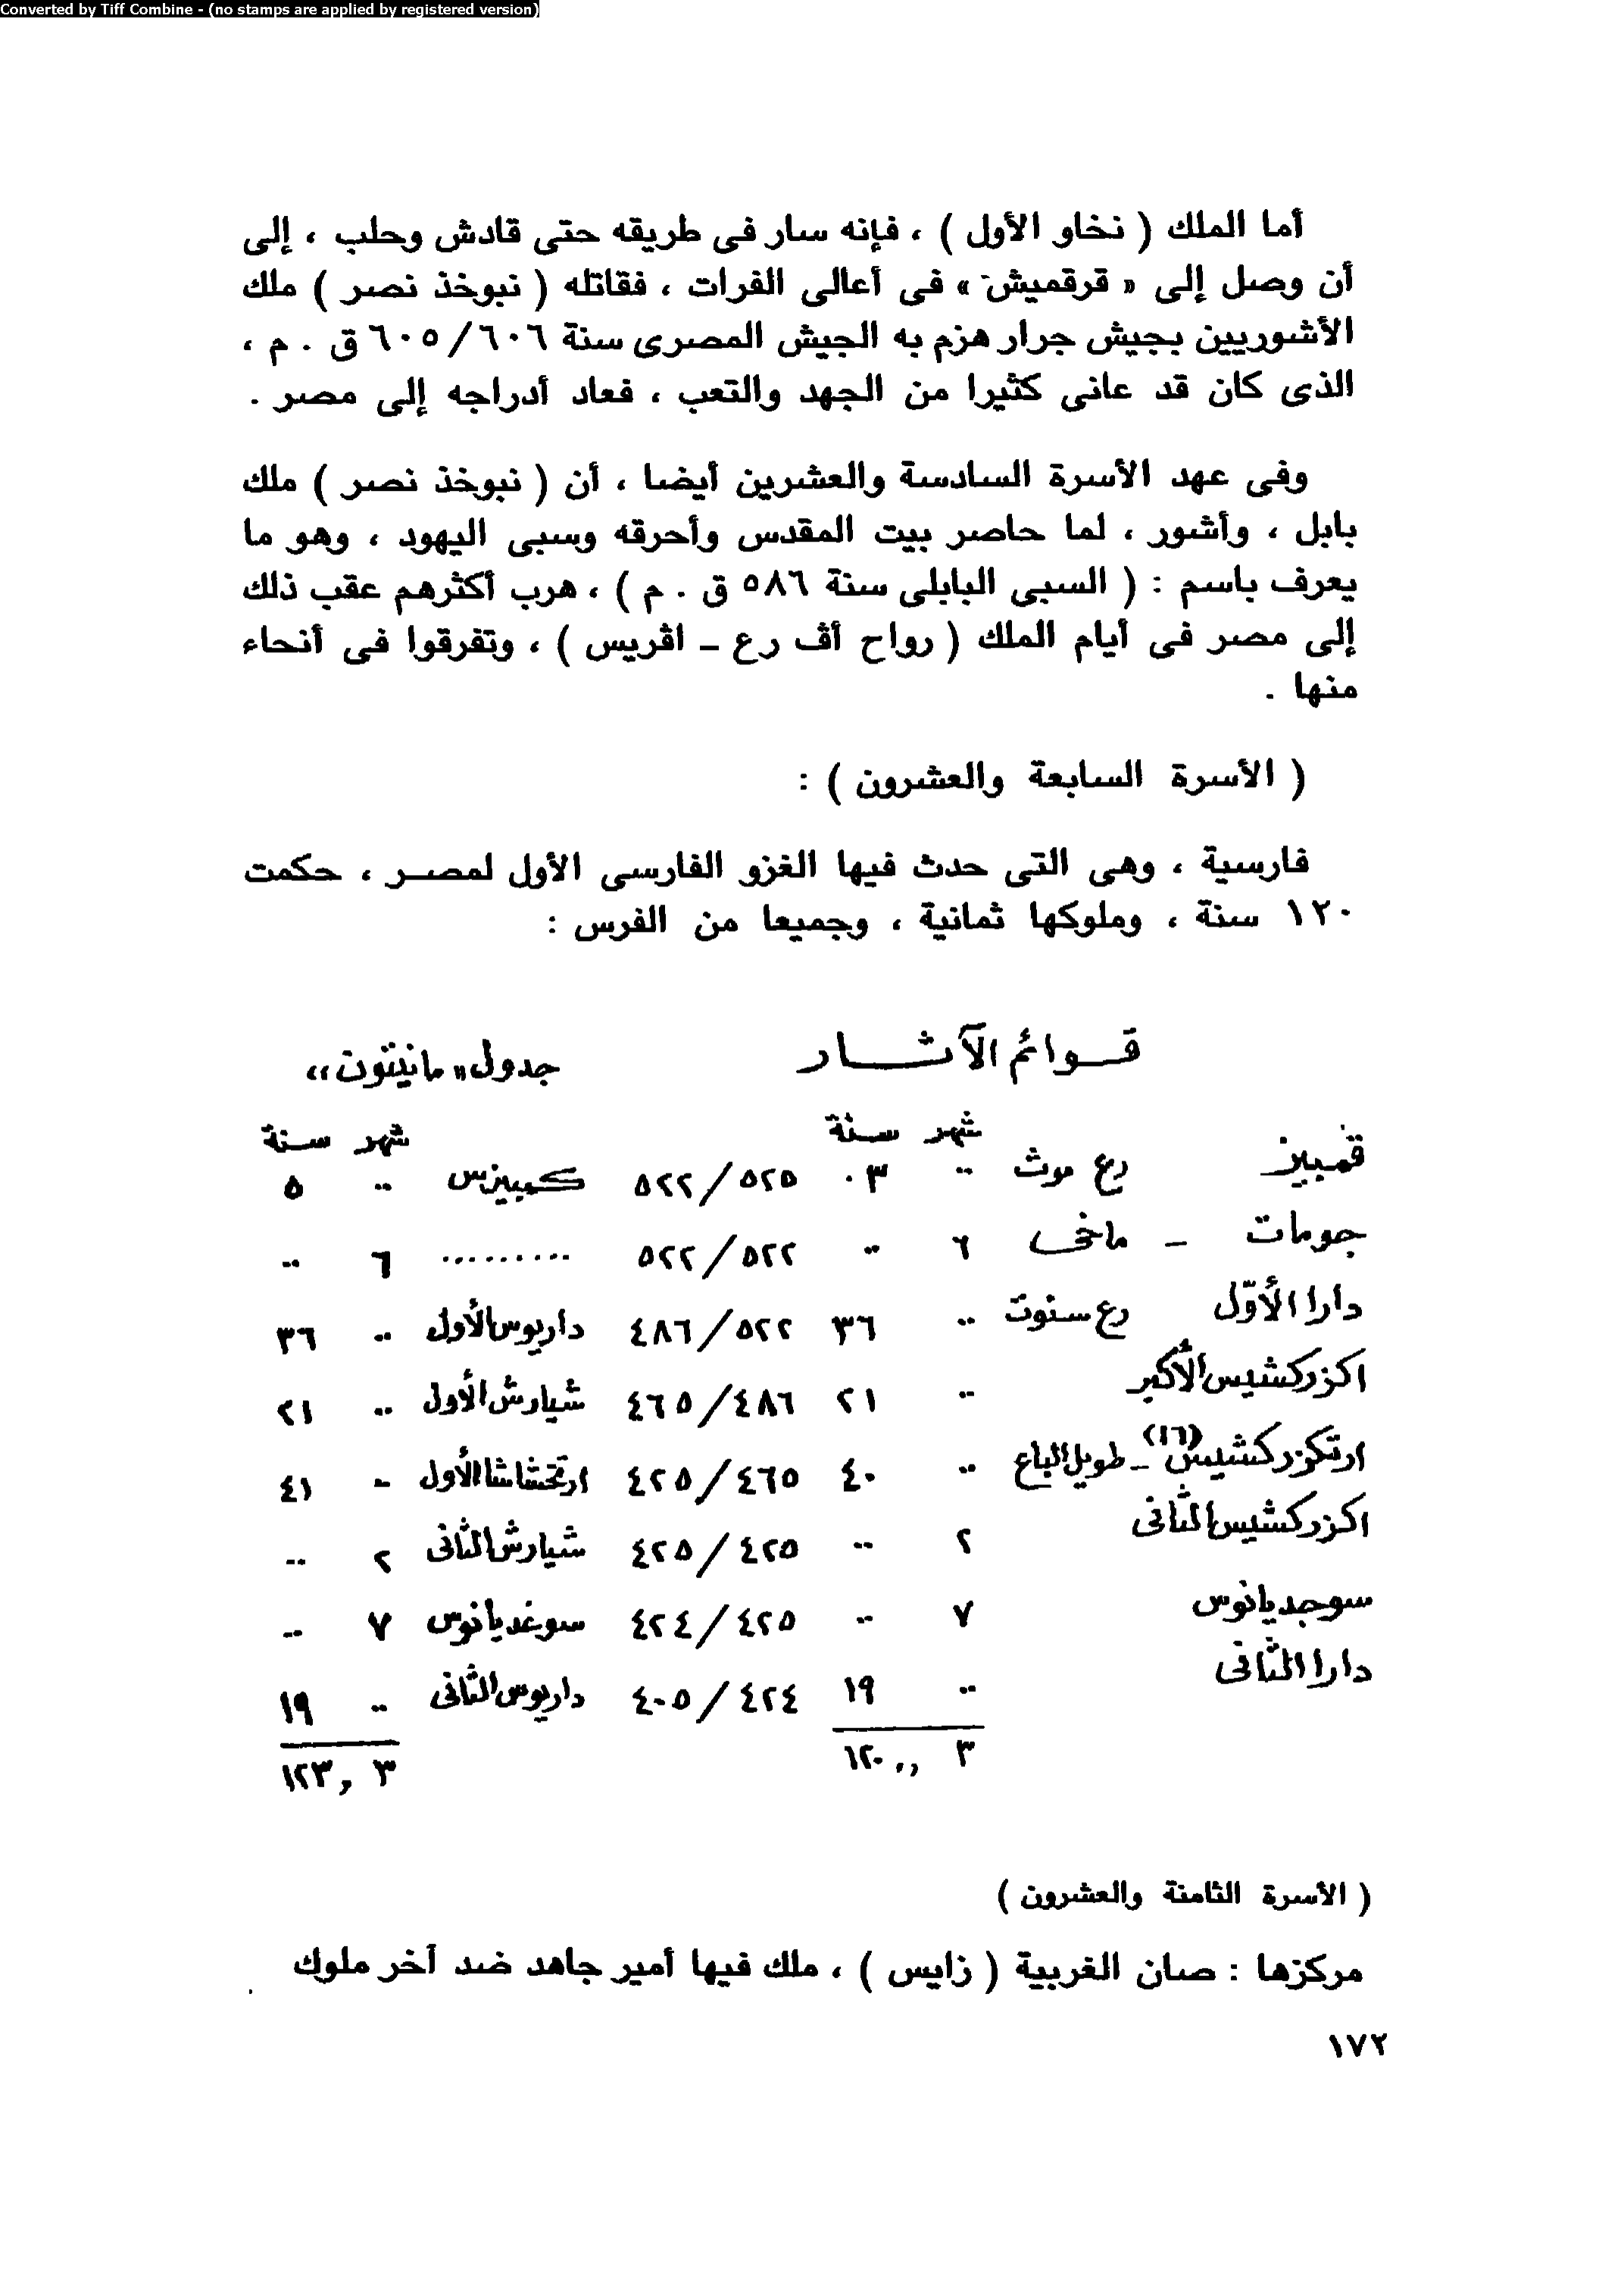 Converted by Tiff Combine - (no stamps are applied by registered version)
أما الملك ( نخاو الأول ) ، فإنه سار فى طريقه حتى قادش وحلب ، إلى
أن وصل إلى « قرقميش » فى أعالى الفرات ، فقاتله ( نبوخذ نصر ) ملك
الأشوريين بجيش جرار هزم به الجيش المصرى سنة ٦٠٥/٦٠٦ ق . م ،
الذى كان قد عانى كثيرا من الجهد والتعب ، فعاد أدراجه إلى مصر .
وفى عهد الأسرة السادسة والعشرين أيضا ، أن ( نبوخذ نصر ) ملك
بابل ، وأشور ، لما حاصر بيت المقدس وأحرقه وسبى اليهود ، وهو ما
يعرف باسم : ( السبى البابلى سنة ٥٨٦ ق . م ) ، هرب أكثرهم عقب ذلك
إلى مصر فى أيام الملك ( رواح أڤ رع – اڤريس ) ، وتفرقوا فى أنحاء
منها .
( الأسرة السابعة والعشرون ) :
فارسية ، وهى التى حدث فيها الغزو الفارسى الأول لمصر ، حكمت
١٢٠ سنة ، وملوكها ثمانية ، وجميعا من الفرس :
قوائم الآثار جدول «مانيتون»
شهر سنة شهر سنة
قمبيز رع موث .. ٠٣ ٥٢٥/٥٢٢ كمبيزس .. ٥
جومات – ماخى ٦ .. ٥٢٢/٥٢٢ .......... ٦ ..
دارا الأوّل رع ستوت .. ٣٦ ٥٢٢/٤٨٦ داريوس الأول .. ٣٦
اكزركشيس الأكبر .. ٢١ ٤٨٦/٤٦٥ شيارش الأول .. ٢١
ارتكزركشيس (١٦) – طويل الباع .. ٤٠ ٤٦٥/٤٢٥ ارتخشاشا الأول .. ٤١
اكزركشيس الثانى ٢ .. ٤٢٥/٤٢٥ شيارش الثانى ٢ ..
سوجديانوس ٧ .. ٤٢٥/٤٢٤ سوغديانوس ٧ ..
دارا الثانى .. ١٩ ٤٢٤/٤٠٥ داريوس الثانى .. ١٩
٣ ,, ١٢٠ ٣ , ١٢٣
( الأسرة الثامنة والعشرون )
مركزها : صان الغربية ( زايس ) ، ملك فيها أمير جاهد ضد آخر ملوك
١٧٢